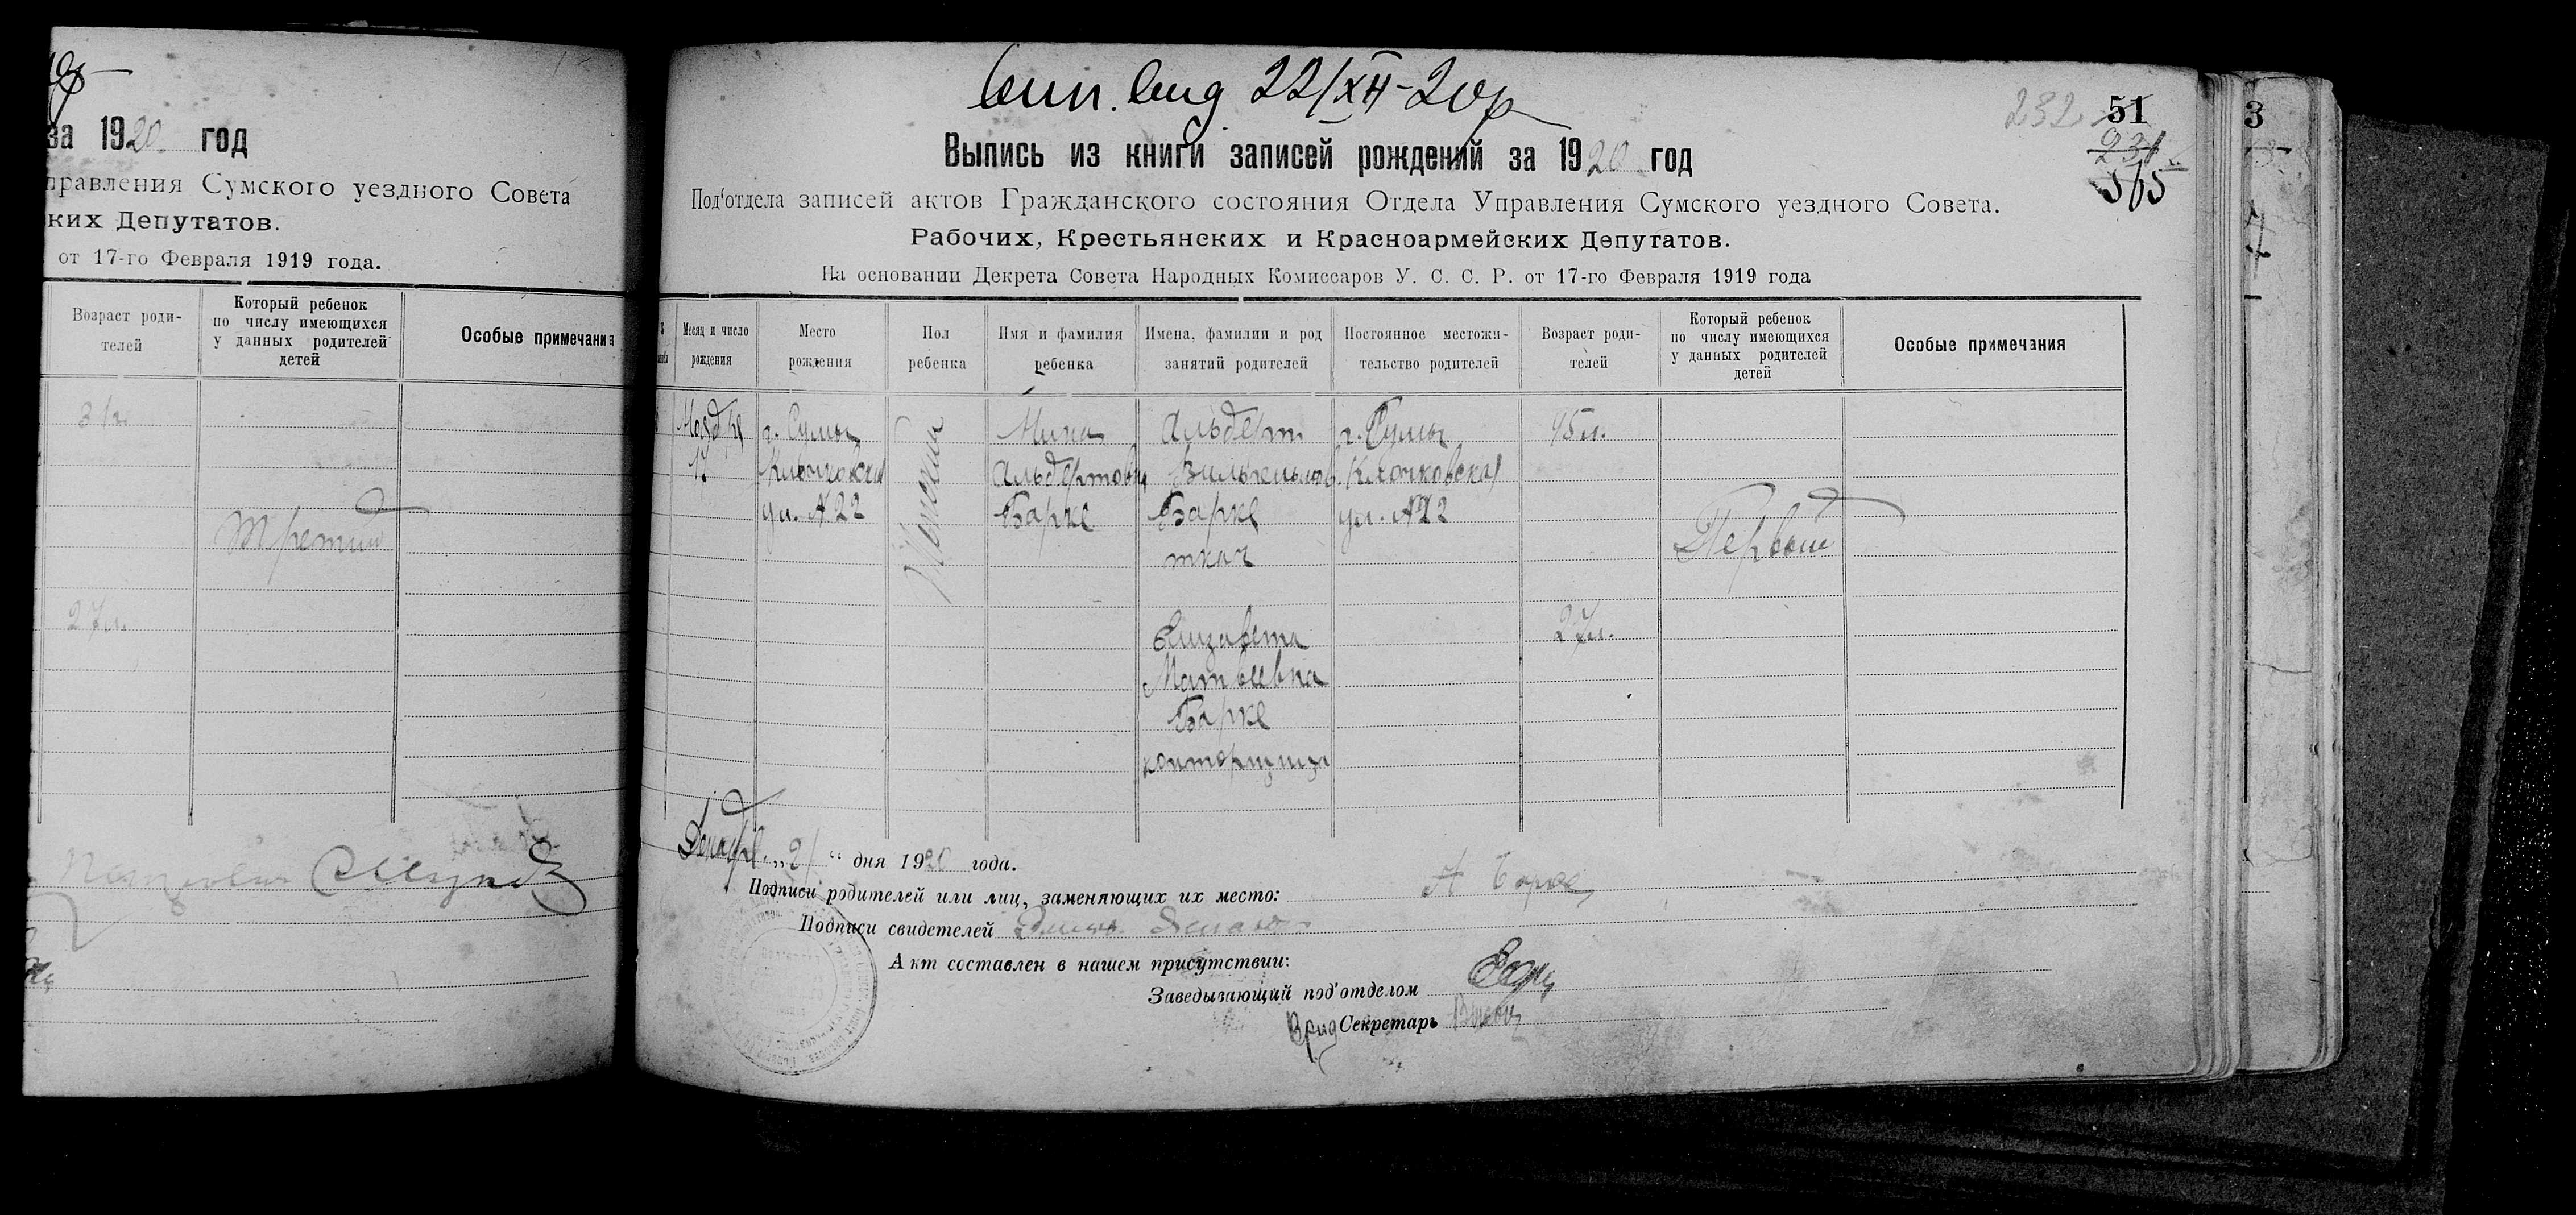 за 1920 год
правления Сумского уездного Совета
ких Депутатов.
от 17-го Февраля 1919 года.
Возраст роди-
телей
Который ребенок
по числу имеющихся
у данных родителей
детей
Особые примечания
31г.
третий
27л.
22/XII-20р
232 51
231
365
Выпись из книги записей рождений за 1920 год
Под'отдела записей актов Гражданского состояния Отдела Управления Сумского уездного Совета.
Рабочих, Крестьянских и Красноармейских Депутатов.
На основании Декрета Совета Народных Комиссаров У. С. С. Р. от 17-го Февраля 1919 года
Месяц и число
рождения
Место
рождения
Пол
ребенка
Имя и фамилия
ребенка
Имена, фамилии и род
занятий родителей
Постоянное местожи-
тельство родителей
Возраст роди-
телей
Который ребенок
по числу имеющихся
у данных родителей
детей
Особые примечания
г. Сумы
Клочковская
ул. № 22
Женский
Мина
Альбертовна
Барке
Альберт
Вильгельмов.
Барке
ткач
Елизавета
Матвеевна
Барке
конторщица
г. Сумы
Клочковская
ул. №22
45л.
27л.
Первый
Декабря „21“ дня 1920 года.
Подписи родителей или лиц, заменяющих их место: А Барке
Подписи свидетелей
Акт составлен в нашем присутствии:
Заведывающий под'отделом
Врид Секретарь
3